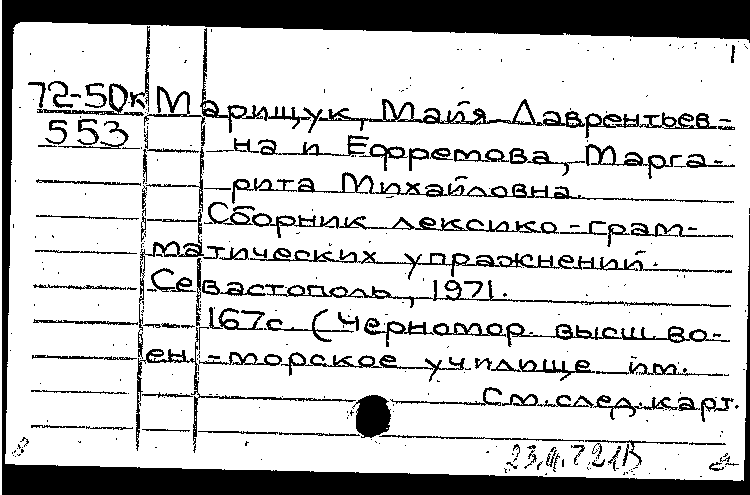 1
72-50к Марищук, Майя Лаврентьев-
553 на и Ефремова, Марга-
рита Михайловна.
Сборник лексико-грам-
матических упражнений.
Севастополь, 1971.
167с. (Черномор. высш. во-
ен.-морское училище им.
См. след. карт.